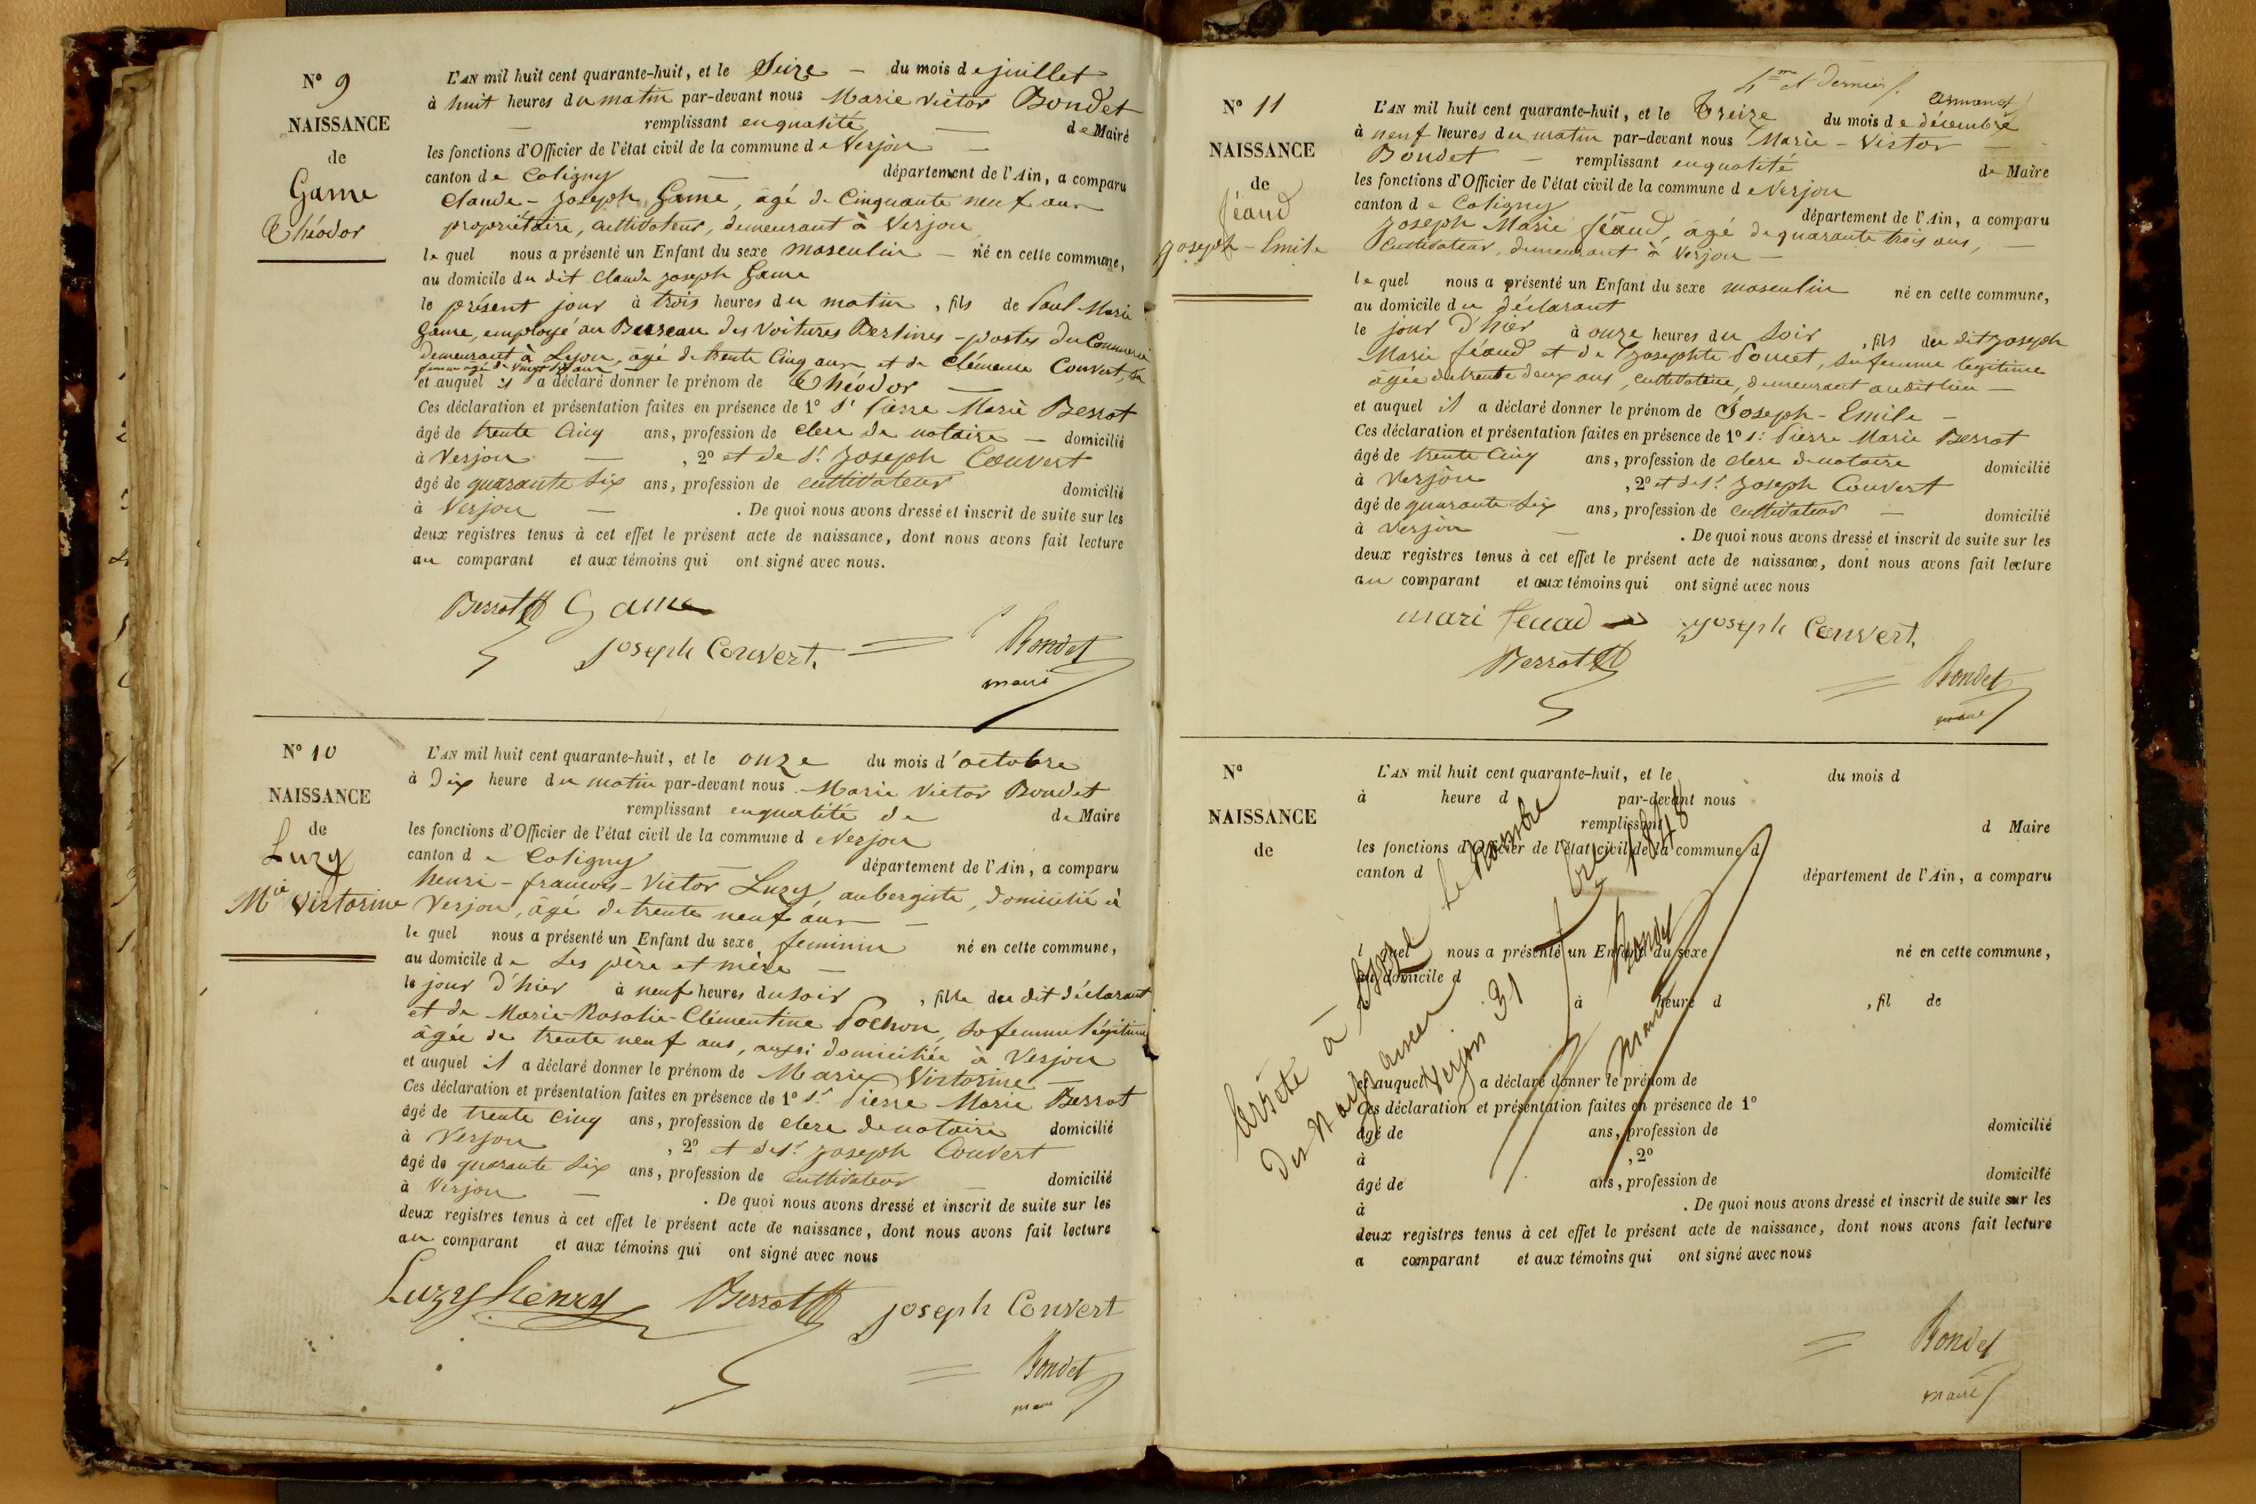 N° 9
NAISSANCE
de
Game
Théodor
L'AN mil huit cent quarante-huit, et le Seize — du mois de juillet
à huit heures du matin par-devant nous Marie Victor Bondet
— remplissant en qualité — de Maire
les fonctions d'Officier de l'état civil de la commune de Verjon —
canton de Coligny — département de l'Ain, a comparu
Claude-Joseph Game, âgé de Cinquante neuf ans
propriétaire, cultivateur, demeurant à Verjon
le quel nous a présenté un Enfant du sexe masculin — né en cette commune,
au domicile du dit Claude Joseph Game
le présent jour à trois heures du matin, fils de Paul Marie
Game, employé au Bureau des Voitures Berlines-postes du Commerce
demeurant à Lyon, âgé de trente Cinq ans et de Clémence Convert, sa
femme âgée de Vingt
et auquel il a déclaré donner le prénom de Théodor —
Ces déclaration et présentation faites en présence de 1° Sr Pierre Marie Berrot
âgé de trente Cinq ans, profession de clerc de notaire — domicilié
à Verjon — , 2° et de Sr Joseph Convert
âgé de quarante Six ans, profession de cultivateur domicilié
à Verjon — . De quoi nous avons dressé et inscrit de suite sur les
deux registres tenus à cet effet le présent acte de naissance, dont nous avons fait lecture
au comparant et aux témoins qui ont signé avec nous.
Berrot Game
Joseph Convert. Bondet
maire
N° 10
NAISSANCE
de
Luzy
Mie Victorine
L'AN mil huit cent quarante-huit, et le onze du mois d'octobre
à Dix heure du matin par-devant nous Marie Victor Bondet
remplissant en qualité de de Maire
les fonctions d'Officier de l'état civil de la commune de Verjon
canton de Coligny département de l'Ain, a comparu
henri-francois-Victor Luzy, aubergiste, domicilié à
Verjon, âgé de trente neuf ans —
le quel nous a présenté un Enfant du sexe feminin né en cette commune,
au domicile de Ses père et mère —
le jour d'hier à neuf heures du soir, fille du dit déclarant
et de Marie-Rosalie-Clémentine Pochon, sa femme légitime
âgée de trente neuf ans, aussi domiciliée à Verjon
et auquel il a déclaré donner le prénom de Marie Victorine —
Ces déclaration et présentation faites en présence de 1° Sr Pierre Marie Berrot
âgé de trente Cinq ans, profession de clerc de notaire domicilié
à Verjon , 2° et de Sr Joseph Convert
âgé de quarante Six ans, profession de cultivateur — domicilié
à Verjon — . De quoi nous avons dressé et inscrit de suite sur les
deux registres tenus à cet effet le présent acte de naissance, dont nous avons fait lecture
au comparant et aux témoins qui ont signé avec nous
Luzy henry Berrot Joseph Convert
Bondet
maire
4me et Dernier f.
N° 11
NAISSANCE
de
féaud
Joseph-Emile
L'AN mil huit cent quarante-huit, et le Treize du mois de décembre
à neuf heures du matin par-devant nous Marie-Victor —
Bondet — remplissant en qualité de Maire
les fonctions d'Officier de l'état civil de la commune de Verjon
canton de Coligny département de l'Ain, a comparu
Joseph Marie féaud, âgé de quarante trois ans, —
Cultivateur, demeurant à Verjon —
le quel nous a présenté un Enfant du sexe masculin né en cette commune,
au domicile du déclarant
le jour d'hier à onze heures du soir, fils du dit Joseph
Marie féaud et de Josephte Poncet, sa femme légitime
âgée de trente deux ans, cultivatrice, demeurant audit lieu —
et auquel il a déclaré donner le prénom de Joseph-Emile —
Ces déclaration et présentation faites en présence de 1° Sr Pierre Marie Berrot
âgé de trente Cinq ans, profession de clerc de notaire domicilié
à Verjon , 2° et de Sr Joseph Convert
âgé de quarante Six ans, profession de cultivateur — domicilié
à Verjon — . De quoi nous avons dressé et inscrit de suite sur les
deux registres tenus à cet effet le présent acte de naissance, dont nous avons fait lecture
au comparant et aux témoins qui ont signé avec nous
mari feaud Joseph Convert.
Berrot
Bondet
maire
N°
NAISSANCE
de
L'AN mil huit cent quarante-huit, et le du mois d
à heure d par-devant nous
remplissant d Maire
les fonctions d'Officier de l'état civil de la commune d
canton d département de l'Ain, a comparu
quel nous a présenté un Enfant du sexe né en cette commune,
au domicile d
à heure d , fil de
et auquel a déclaré donner le prénom de
Ces déclaration et présentation faites en présence de 1°
âgé de ans, profession de domicilié
à , 2°
âgé de ans, profession de domicilié
à . De quoi nous avons dressé et inscrit de suite sur les
deux registres tenus à cet effet le présent acte de naissance, dont nous avons fait lecture
a comparant et aux témoins qui ont signé avec nous
Arrêté à onze le nombre
des Naissances
Verjon 31 Xbre 1848
Bondet
maire
Bondet
maire